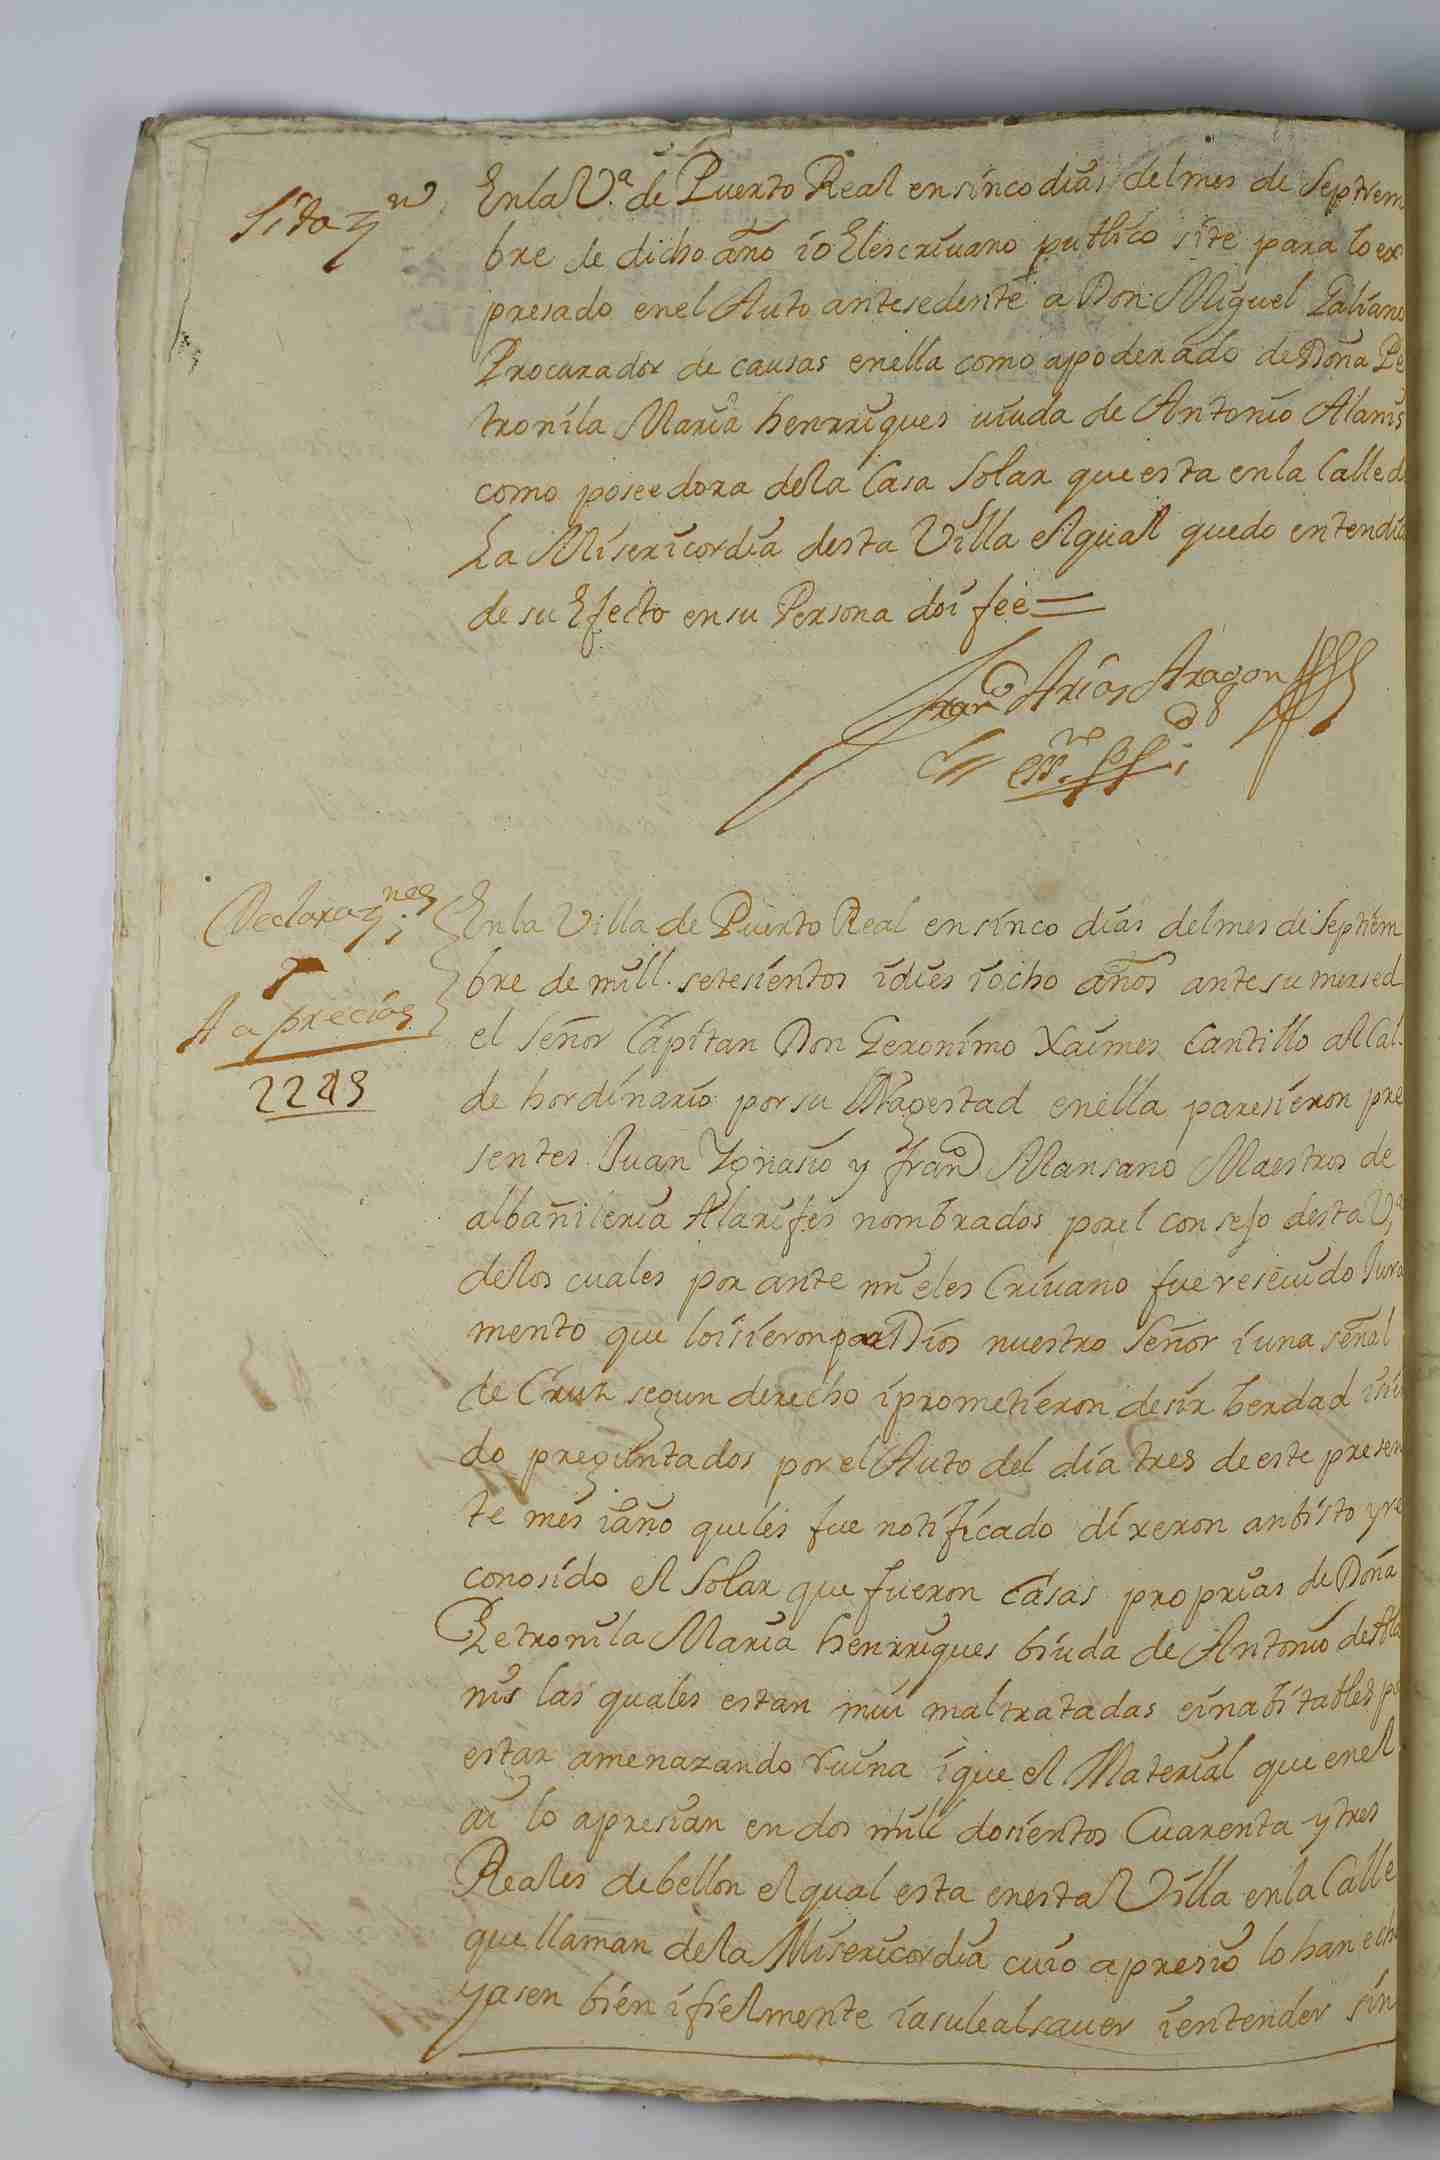 Sitaz.n
En la V.a de Puerto Real en sinco dias del mes de Septiem
bre de dicho año io El escriuano publico site para lo ex
presado en el Auto antesedente a Don Miguel Galiano
Procurador de causas en ella como apoderado de Doña Pe
tronila Maria henrriques uiuda de Antonio Alanis
como poseedora de la Casa Solar que esta en la Calle de
La Misericordia desta Villa el qual quedo entendido
de su Efecto en su Persona doi fee =
Fran.co Arias Aragon
Declaraz.nes
I
A aprecios
2243
En la Villa de Puerto Real en sinco dias del mes de Septiem
bre de mill. setesientos i dies i ocho años ante su mersed
el Señor Capitan Don Geronimo Xaimes Cantillo Alcal
de hordinario por su Magestad en ella paresieron pre
sentes Juan Ygnasio y fran.co Mansano Maestros de
albañileria Alarifes nombrados por el consejo desta V.a
de los cuales por ante mi el esCriuano fue reseuido Jura
mento que lo isieron por Dios nuestro Señor i una señal
de Cruz segun derecho i prometieron desir berdad i sien
do preguntados por el Auto del dia tres de este presen
te mes i año que les fue notificado dixeron an bisto y re
conosido el Solar que fueron Casas proprias de Doña
Petronila Maria henrriques biuda de Antonio de Ala
nis las quales estan mui maltratadas e inabitables po
estar amenazando ruina i que el Material que en el
ai lo apresian en dos mill dosientos Cuarenta y tres
Reales de bellon el qual esta en esta Villa en la Calle
que llaman de la Misericordia cuio apresio lo han echo
y asen bien i fielmente i a su leal sauer i entender sin